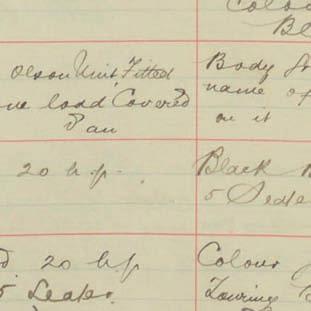 Colou
Bl
Olson Unit, Fitted
one load Covered
Van
Body
name of
on it
20 h.p.
Black
5 Seate
20 hp
5 Seater.
Colour
Touring